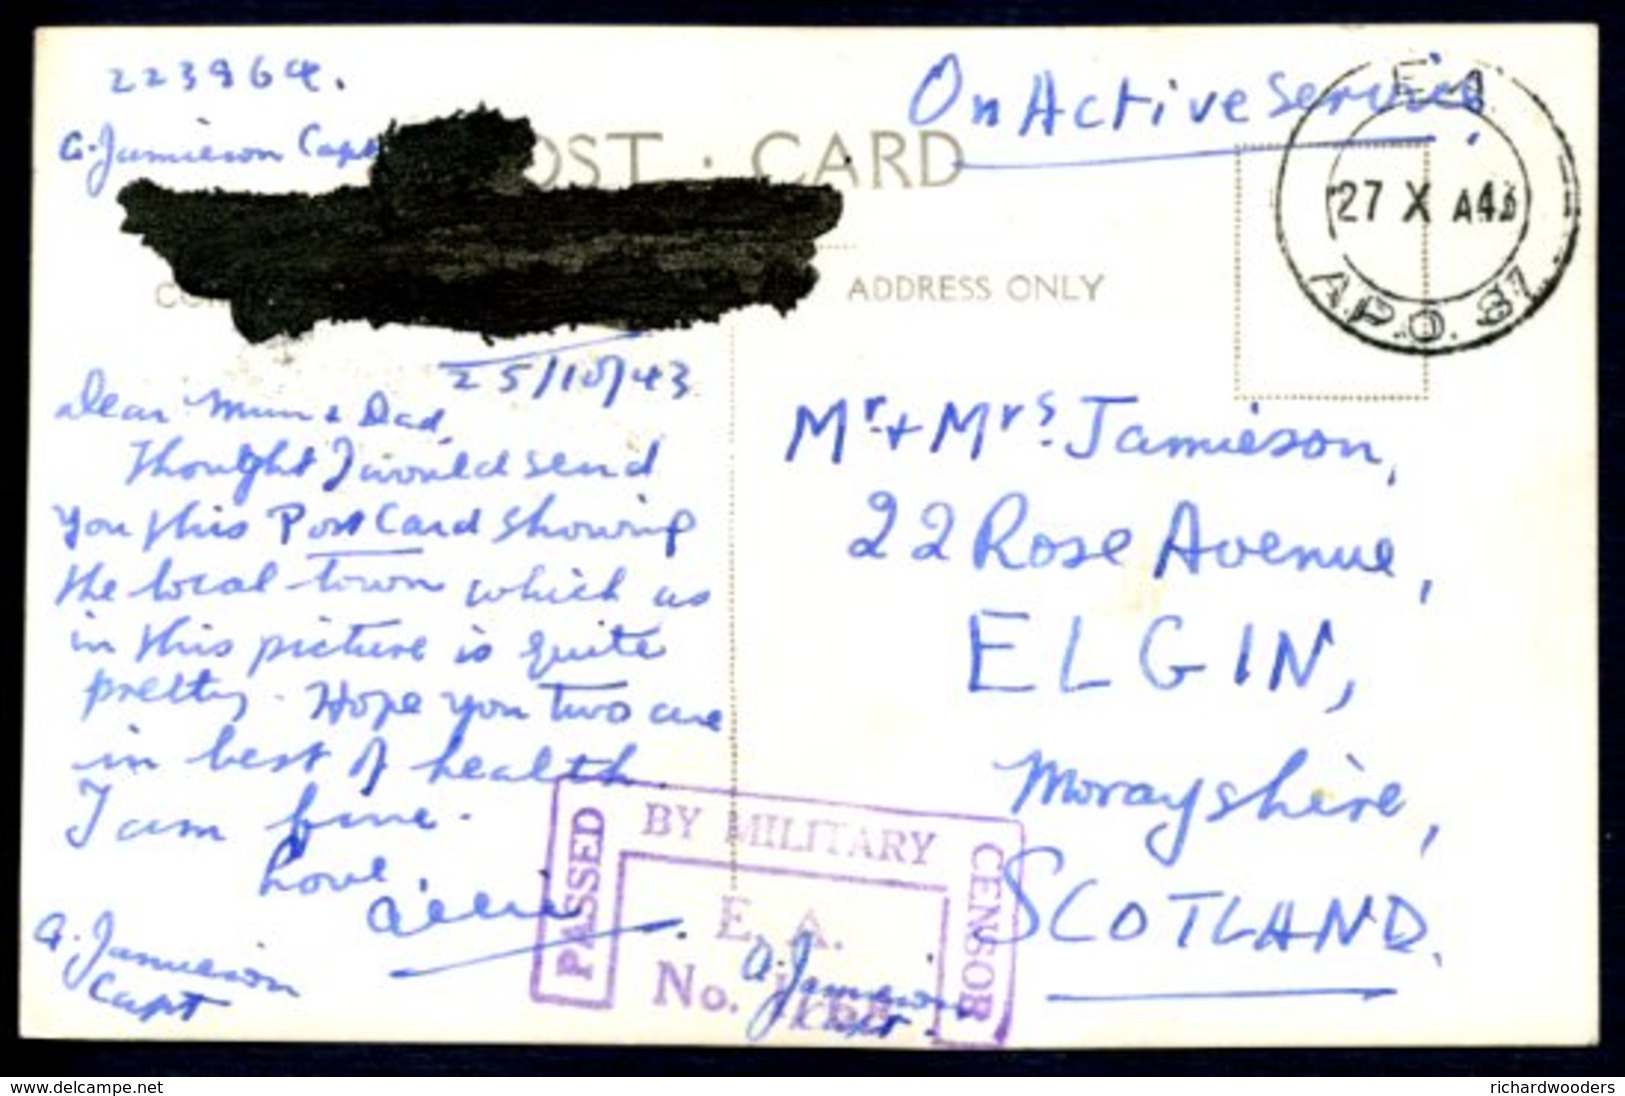 223964.
A. Jamieson Capt
POST . CARD
On Active Service.
E.A.
27 X A43
A.P.O. 87.
ADDRESS ONLY
25/10/43
Dear Mum & Dad,
Thought I would send
you this Post Card showing
the local town which as
in this picture is quite
pretty. Hope you two are
in best of health.
I am fine.
Love,
A. Jamieson
Capt
Mr. + Mrs. Jamieson,
22 Rose Avenue,
ELGIN,
Morayshire,
SCOTLAND.
PASSED
BY MILITARY
CENSOR
E. A.
No.
A. Jamieson
Capt.
www.delcampe.net
richardwooders